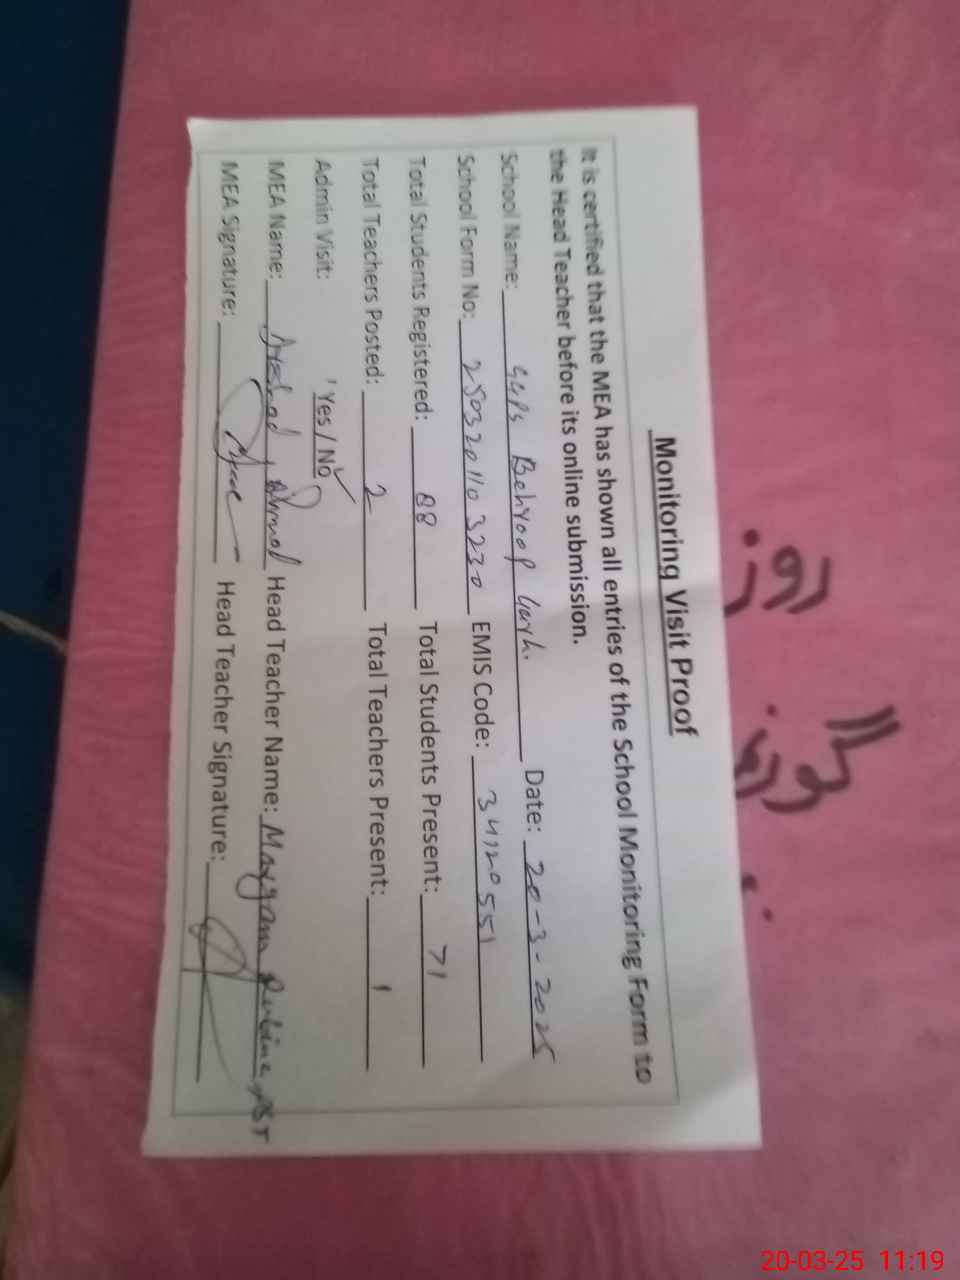 Monitoring Visit Proof
It is certified that the MEA has shown all entries of the School Monitoring Form to
the Head Teacher before its online submission.
School Name: GGPS Behroop Garh. Date: 20-3-2025
School Form No: 2503201103230 EMIS Code: 34120551
Total Students Registered: 88 Total Students Present: 71
Total Teachers Posted: 2 Total Teachers Present: 1
Admin Visit: Yes / No ✓
MEA Name: Arshad Ahmad Head Teacher Name: Maryam Rubina PST
MEA Signature: Head Teacher Signature:
20-03-25 11:19